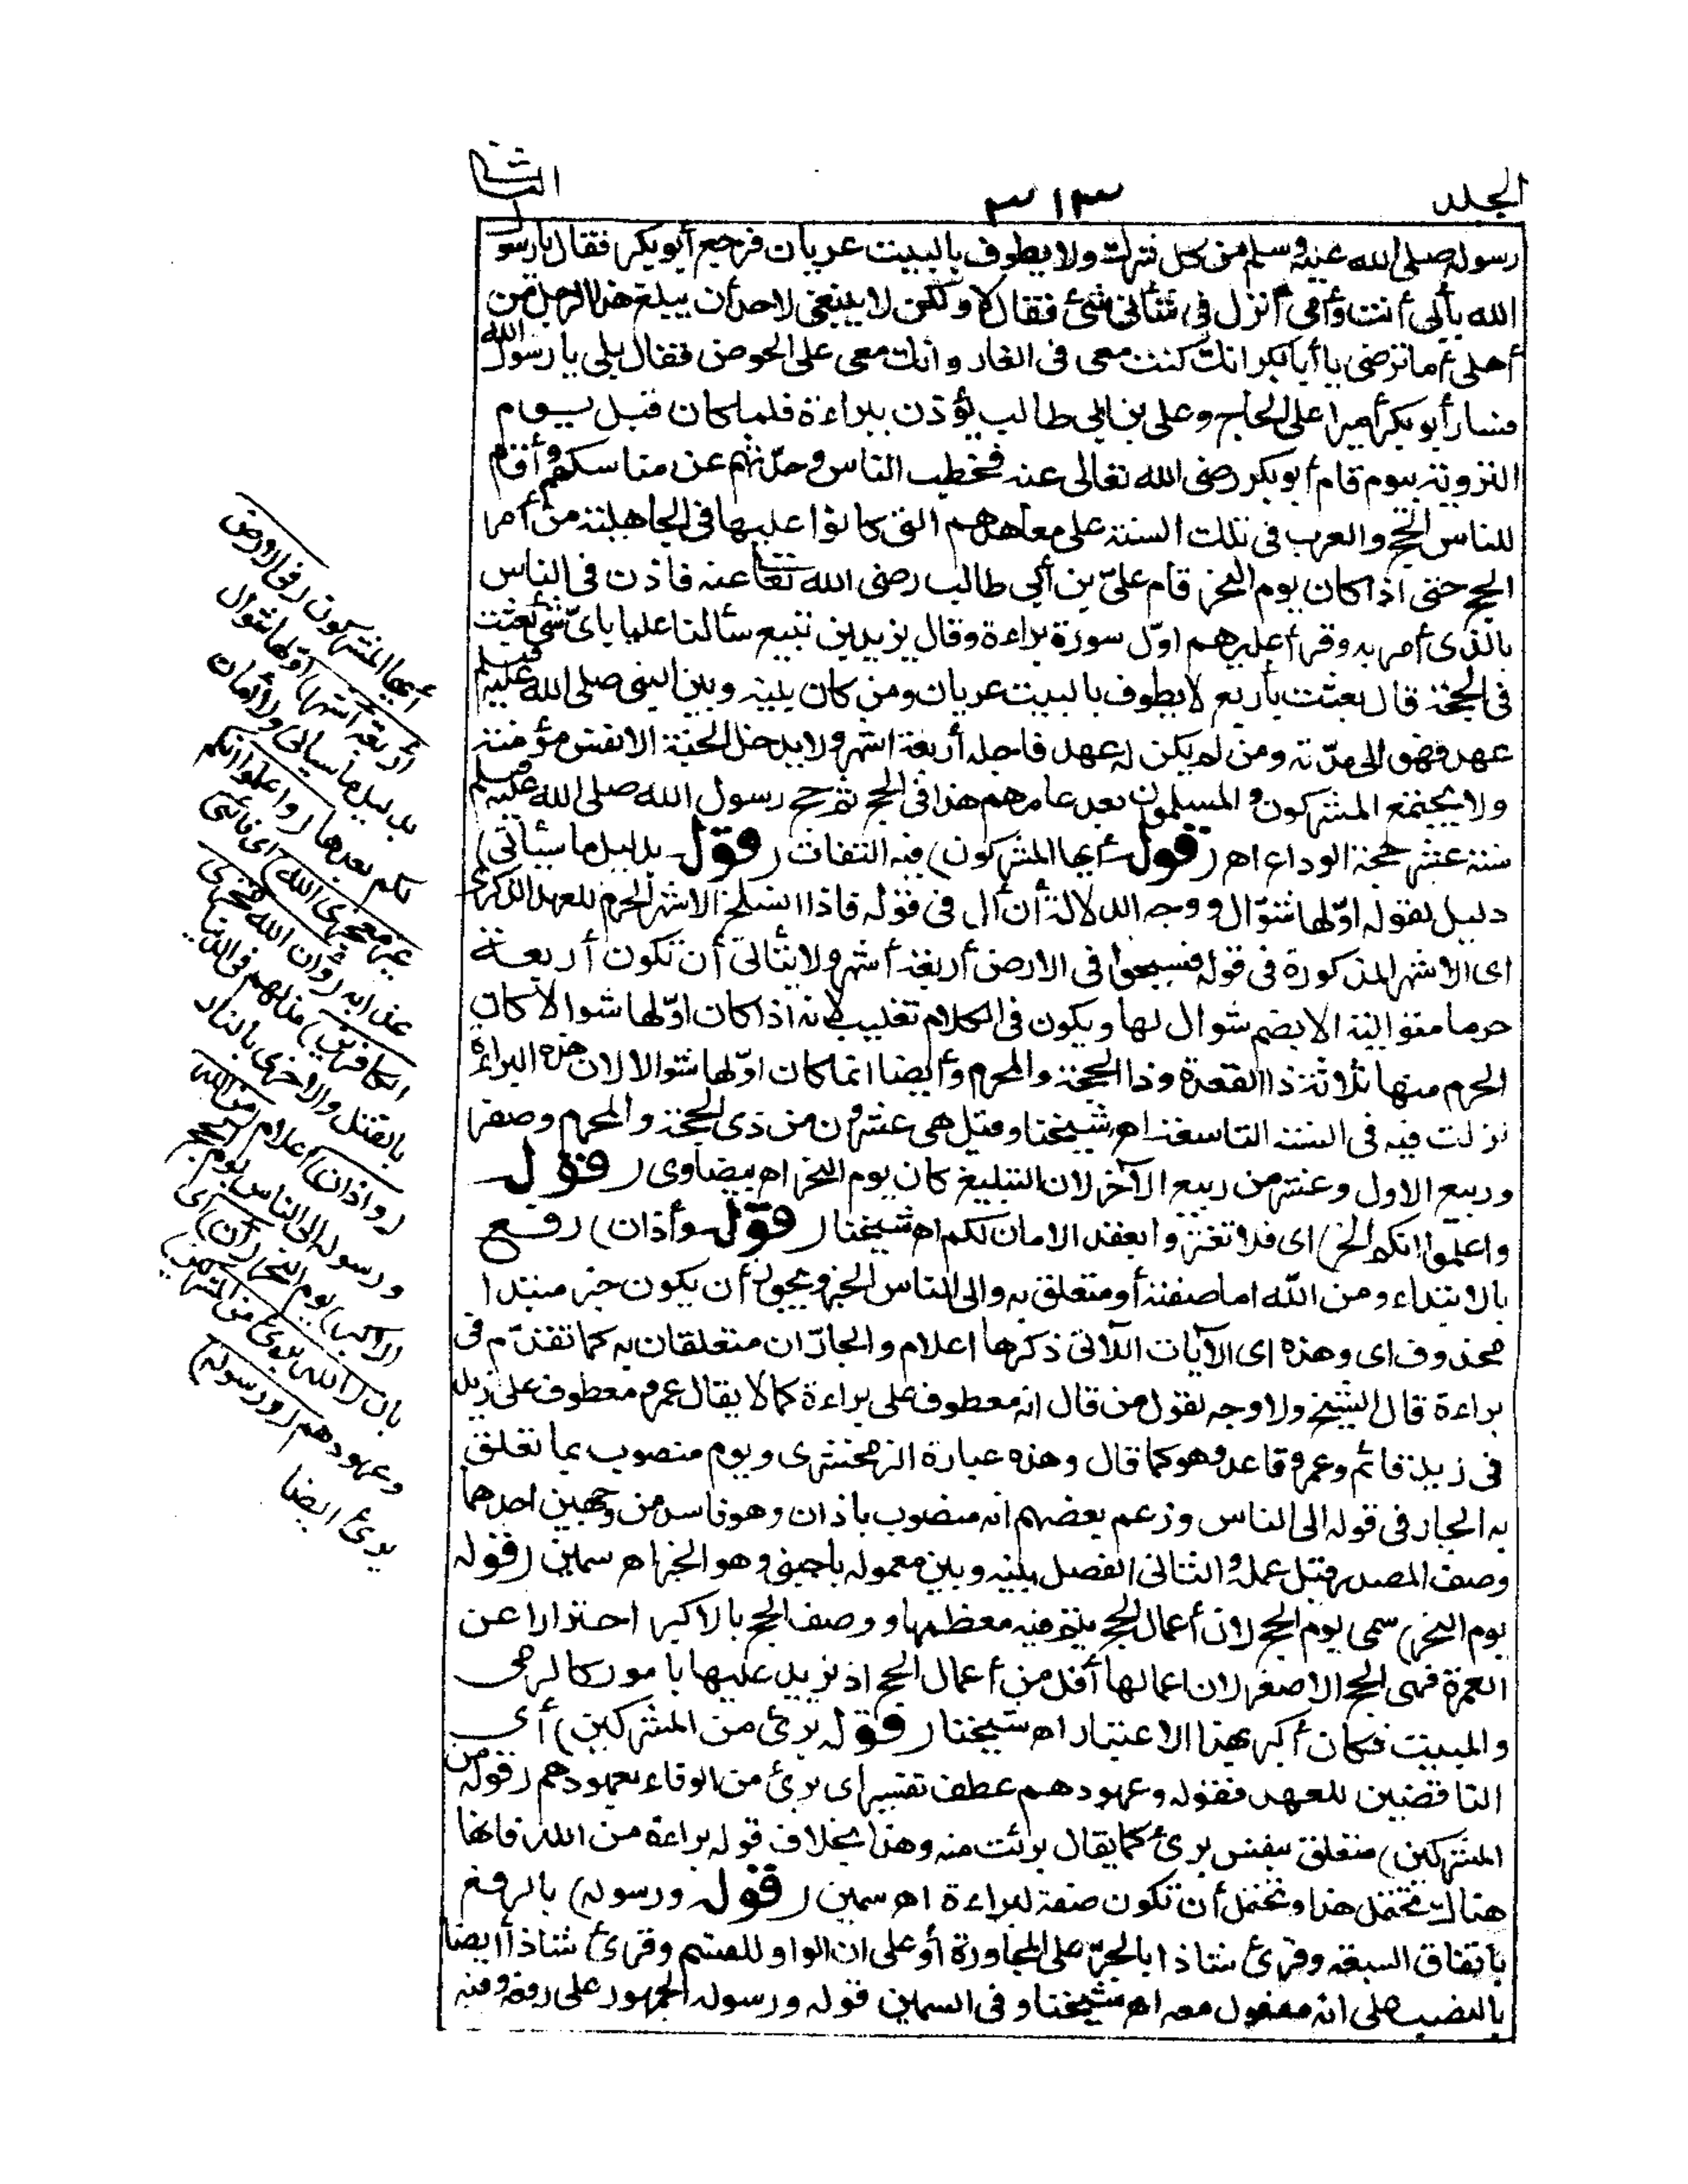 الجلد
٣١٣
الثانى
رسوله صلى الله عليه وسلم من كل شرك ولا يطوف بالبيت عريان فرجع أبو بكر فقال يا رسول
الله بأبى أنت وأمى أنزل فى شأنى شئ فقال لا ولكن لا ينبغى لاحد أن يبلغ هذا الا رجل من
أهلى أما ترضى يا أبا بكر انك كنت معى فى الغار وانك معى على الحوض فقال بلى يا رسول الله
فسار أبو بكر أميرا على الحاج وعلى بن أبى طالب يؤذن ببراءة فلما كان قبل يوم
التروية بيوم قام أبو بكر رضى الله تعالى عنه فخطب الناس وحدّثهم عن مناسكهم وأقام
للناس الحج والعرب فى تلك السنة على معاهدهم التى كانوا عليها فى الجاهلية من أمر
الحج حتى اذا كان يوم النحر قام علىّ بن أبى طالب رضى الله تعا عنه فاذن فى الناس
بالذى أمر به وقرأ عليهم اوّل سورة براءة وقال يزيد بن تبيع سألنا عليا باىّ شئ بعثت
فى الحجة قال بعثت بأربع لا يطوف بالبيت عريان ومن كان بينه وبين النبى صلى الله عليه وسلم
عهد فهو الى مدّته ومن لم يكن له عهد فاجله أربعة اشهر ولا يدخل الجنة الا نفس مؤمنة
ولا يجتمع المشركون والمسلمون بعد عامهم هذا فى الحج ثم حج رسول الله صلى الله عليه وسلم
سنة عشر حجة الوداع اه (قوله أيها المشركون) فيه التفات (قوله بدليل ما سيأتى)
دليل لقوله اوّلها شوّال ووجه الدلالة أن أل فى قوله فاذا انسلخ الاشهر الحرم للعهد الذكرى
اى الاشهر المذكورة فى قوله فسيحوا فى الارض أربعة أشهر ولا يتأتى أن تكون أربعة
حرما متوالية الا بضم شوال لها ويكون فى الكلام تغليب لانه اذا كان اوّلها شوالا كان
الحرم منها ثلاثة ذا القعدة وذا الحجة والمحرم وأيضا انما كان اوّلها شوالا لان هذه البراءة
نزلت فيه فى السنة التاسعة اه شيخنا وقيل هى عشرون من ذى الحجة والمحرم وصفر
وربيع الاول وعشر من ربيع الآخر لان التبليغ كان يوم النحر اه بيضاوى (قوله
واعلموا انكم الخ) اى فلا تغتروا بعقد الامان لكم اه شيخنا (قوله وأذان) رفع
بالابتداء ومن الله اما صفة أو متعلق به والى الناس الخبر ويجوز أن يكون خبر مبتدا
محذوف اى وهذه اى الآيات الآتى ذكرها اعلام والجارّان متعلقان به كما تقدّم فى
براءة قال الشيخ ولا وجه لقول من قال انه معطوف على براءة كما لا يقال عمرو معطوف على زيد
فى زيد قائم وعمرو قاعد وهو كما قال وهذه عبارة الزمخشرى ويوم منصوب بما تعلق
به الجار فى قوله الى الناس وزعم بعضهم انه منصوب باذان وهو فاسد من وجهين احدهما
وصف المصدر قبل عمله والثانى الفصل بينه وبين معموله باجنبى وهو الخبر اه سمين (قوله
يوم النحر) سمى يوم الحج لان أعمال الحج يتم فيه معظمها ووصف الحج بالاكبر احترازا عن
العمرة فهى الحج الاصغر لان اعمالها أقل من أعمال الحج اذ يزيد عليها بامور كالرمى
والمبيت فكان أكبر بهذا الاعتبار اه شيخنا (قوله برئ من المشركين) أى
الناقضين للعهد فقوله وعهودهم عطف تفسير اى برئ من الوفاء بعهودهم (قوله من
المشركين) متعلق بنفس برئ كما يقال برئت منه وهذا بخلاف قوله براءة من الله فانها
هناك تحتمل هذا وتحتمل أن تكون صفة لبراءة اه سمين (قوله ورسوله) بالرفع
باتفاق السبعة وقرئ شاذا بالجرّ على المجاورة أو على ان الواو للقسم وقرئ شاذا أيضا
بالنصب على انه مفعول معه اه شيخنا وفى السمين قوله ورسوله الجمهور على رفعه وفيه
أيها المشركون (فى الارض
أربعة أشهر) اوّلها شوال
بدليل ما سيأتى ولا أمان
لكم بعدها (واعلموا انكم
غير معجزى الله) اى فائتى
عذابه (وأن الله مخزى
الكافرين) مذلهم فى الدنيا
بالقتل والاخرى بالنار
(واذان) اعلام (من الله
ورسوله الى الناس يوم الحج
الاكبر) يوم النحر (أن) اى
بان (الله برئ من المشركين)
وعهودهم (ورسوله)
برئ ايضا